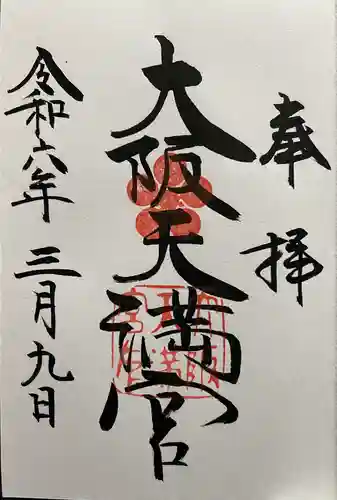 奉拝
大阪天満宮
令和六年三月九日